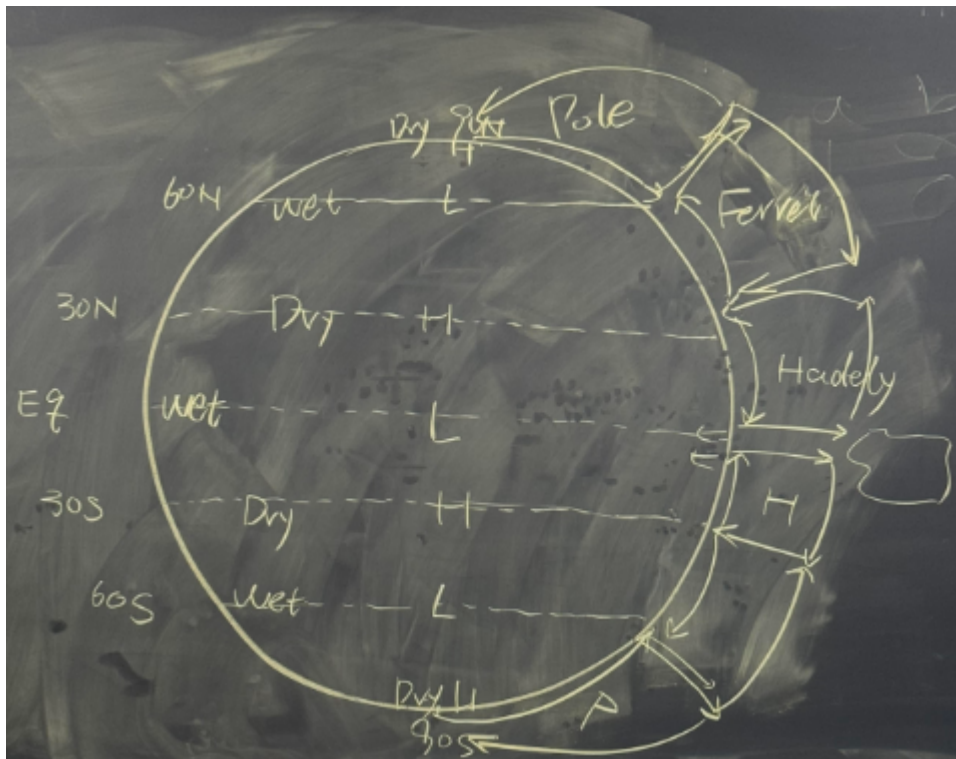 Dry 90N Pole
H
60N Wet L Ferrel
30N Dry H
Hadely
Eq Wet L
30S Dry H H
60S Wet L
Dry H P
90S